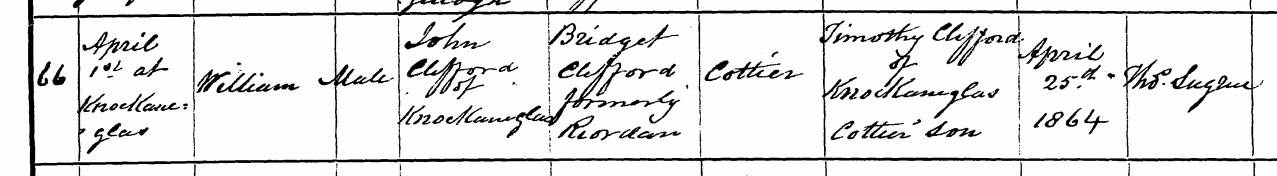 66
April
1st at
Knockane=
=glas
William
Male
John
Clifford
of
Knockaneglas
Bridget
Clifford
formerly
Riordan
Cottier
Timothy Clifford
of
Knockaneglas
Cottier Son
April
25th
1864
Thos. Sugrue